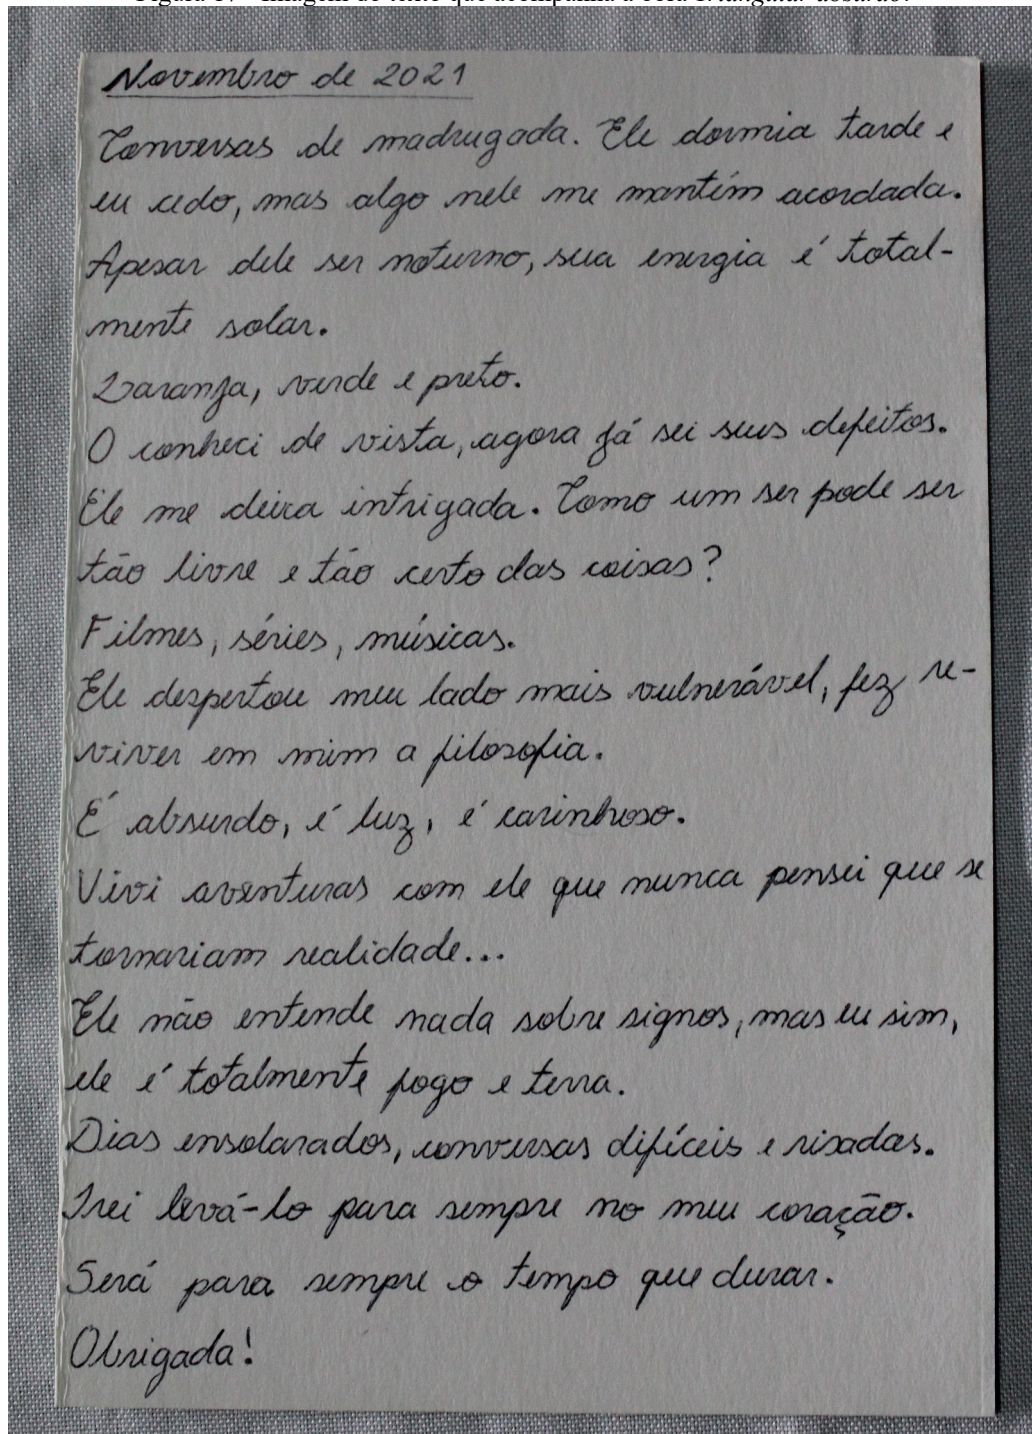 Novembro de 2021
Conversas de madrugada. Ele dormia tarde e
eu cedo, mas algo nele me mantém acordada.
Apesar dele ser noturno, sua energia é total-
mente solar.
Laranja, verde e preto.
O conheci de vista, agora já sei seus defeitos.
Ele me deixa intrigada. Como um ser pode ser
tão livre e tão certo das coisas?
Filmes, séries, músicas.
Ele despertou meu lado mais vulnerável, fez re-
viver em mim a filosofia.
É absurdo, é luz, é carinhoso.
Vivi aventuras com ele que nunca pensei que se
tornariam realidade...
Ele não entende nada sobre signos, mas eu sim,
ele é totalmente fogo e terra.
Dias ensolarados, conversas difíceis e risadas.
Irei levá-lo para sempre no meu coração.
Será para sempre o tempo que durar.
Obrigada!